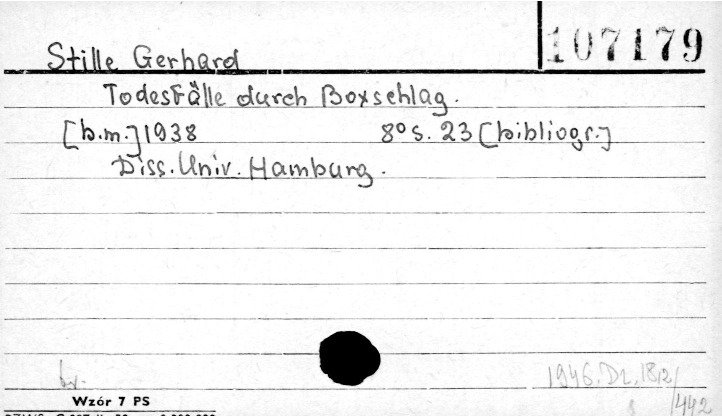 107179
Stille Gerhard
Todesfälle durch Boxschlag.
[b.m.] 1938 8° s. 23 [bibliogr.]
Diss. Univ. Hamburg.
br.
1946. Dr. 1812/
/442
Wzór 7 PS